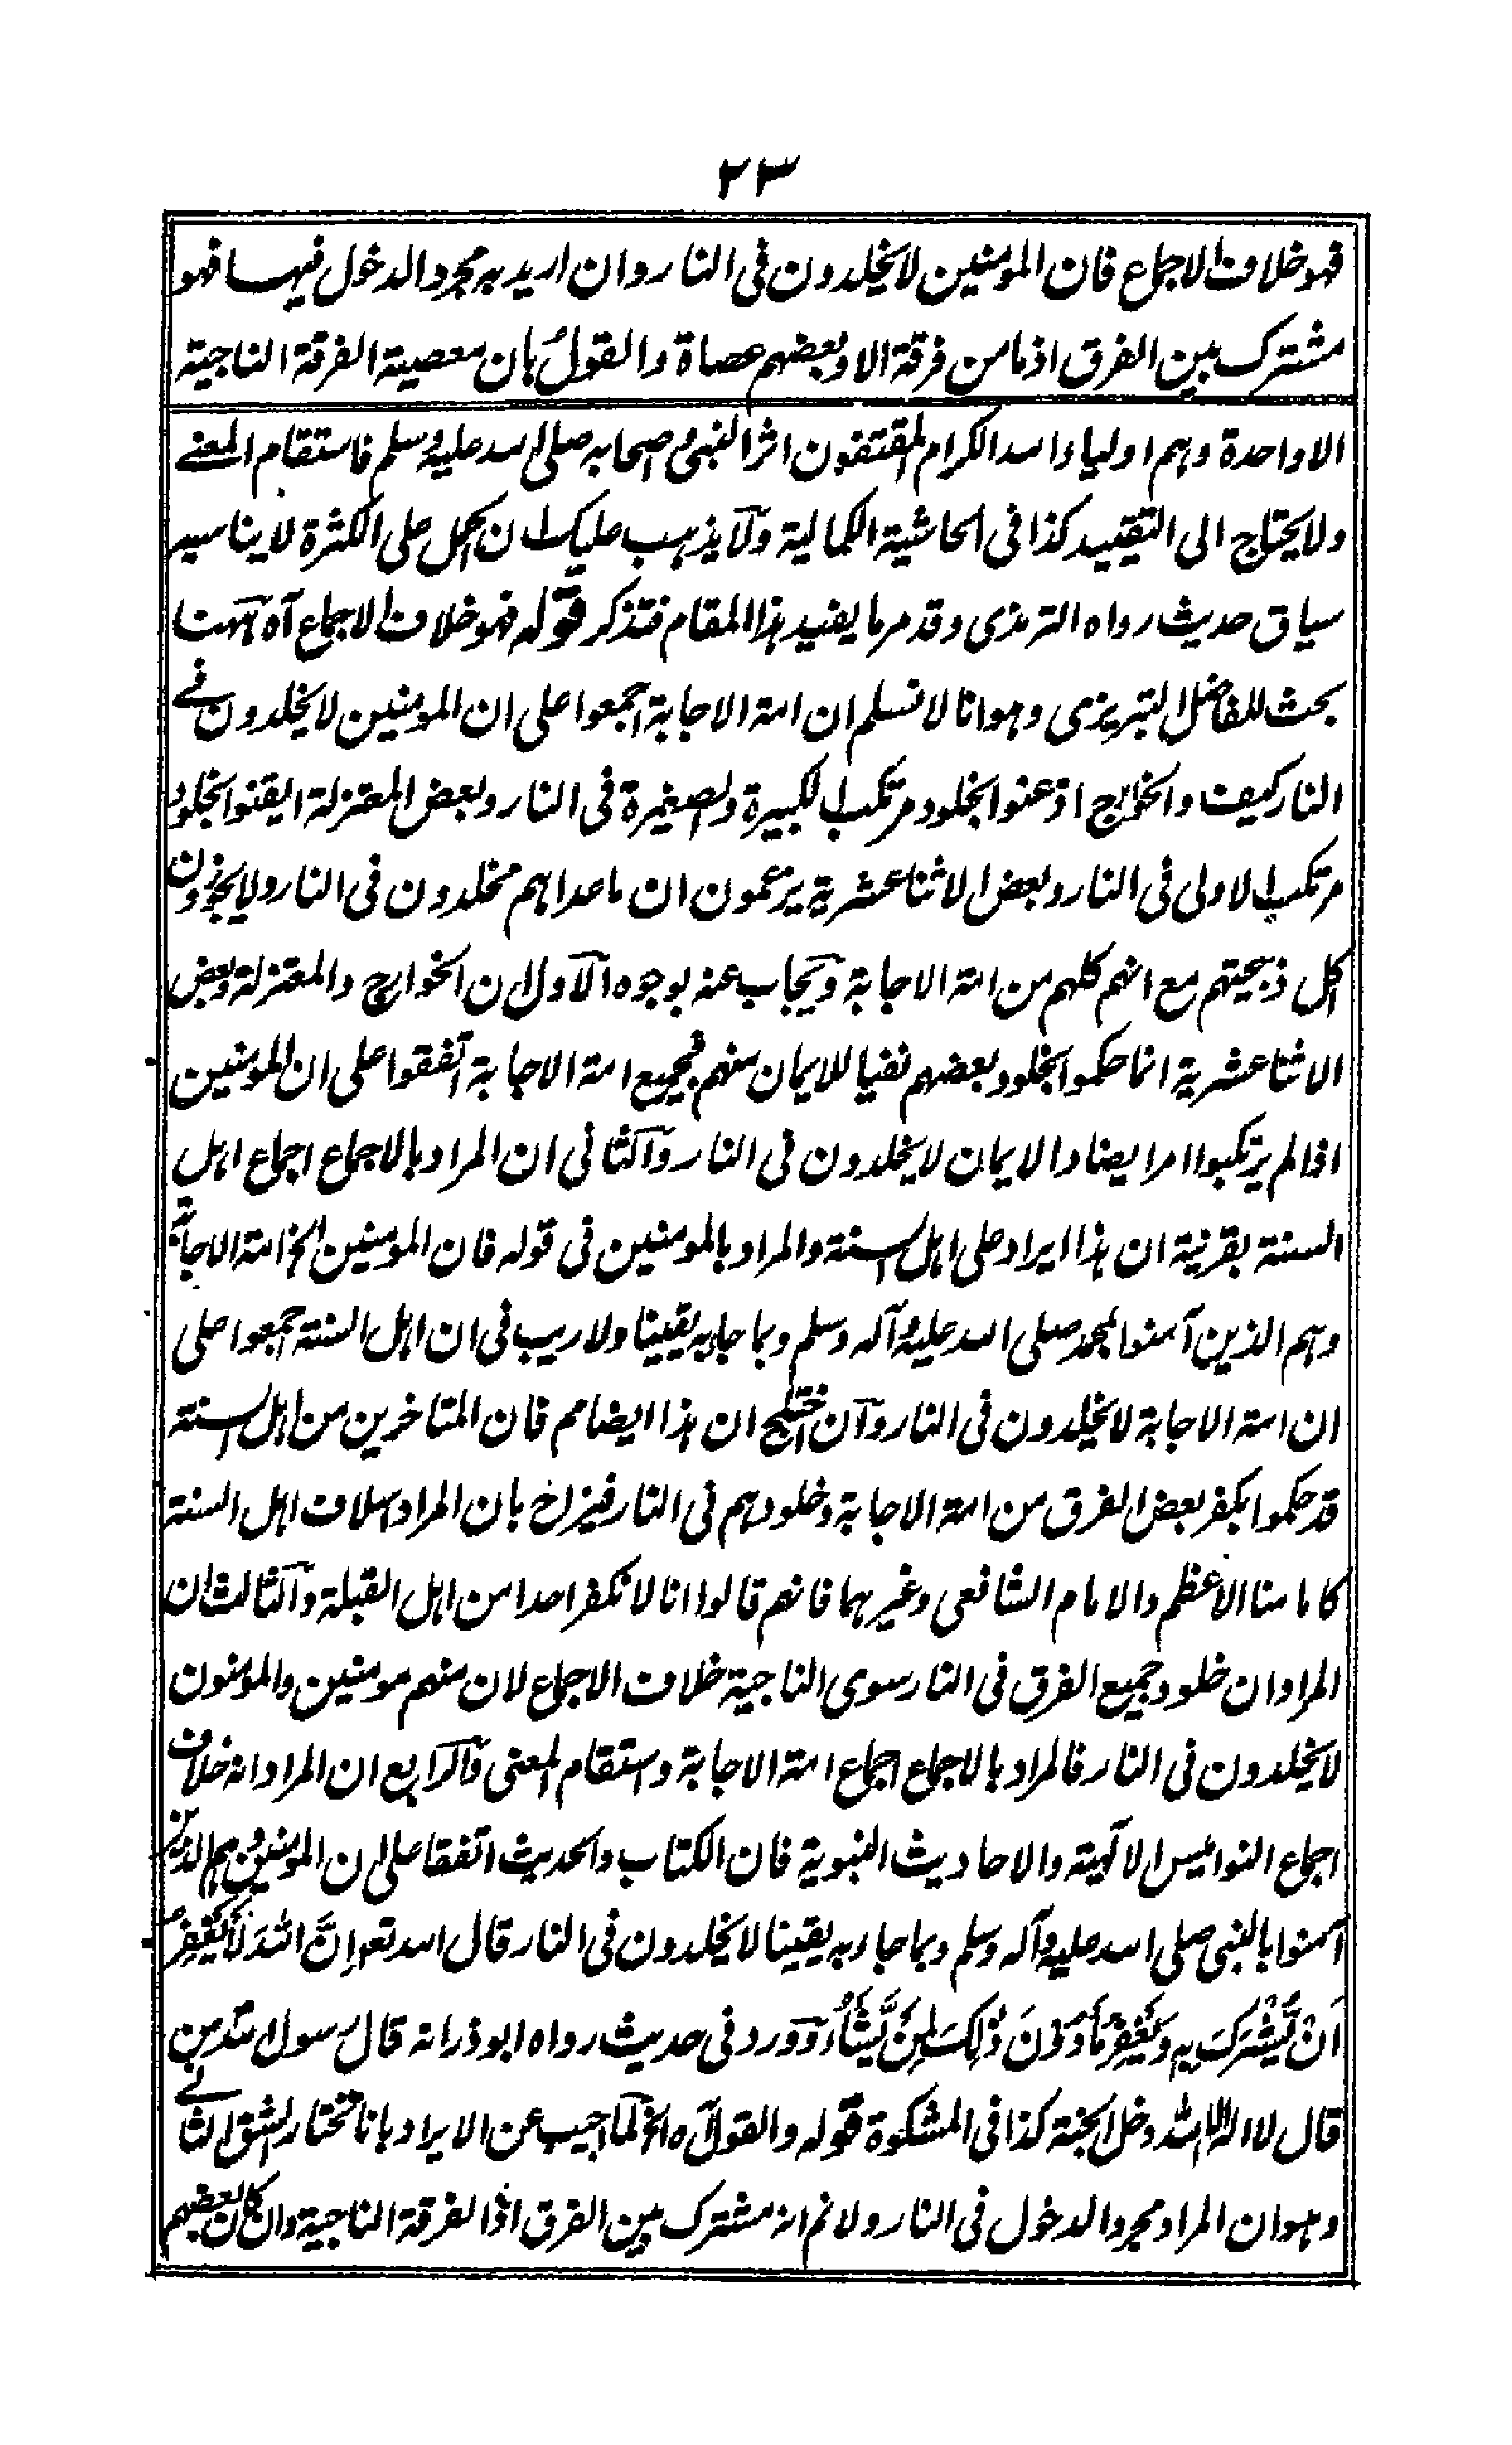 ٢٣
فهو خلاف الاجماع فان المومنين لا يخلدون فى النار وان اريد به مجرد الدخول فيها فهو
مشترك بين الفرق اذ ما من فرقة الا وبعضهم عصاة والقول بان معصية الفرقة الناجية
الا واحدة وهم اولياء الله الكرام المقتفون اثر النبى واصحابه صلى الله عليه وسلم فاستقام المعنے
ولا يحتاج الى التقييد كذا فى الحاشية الكمالية ولا يذهب عليك ان الحمل على الكثرة لا يناسبه
سياق حديث رواه الترمذى وقد مر ما يفيد هذا المقام فتذكر قوله فهو خلاف الاجماع آه ههنا
بحث للفاضل التبريزى وهو انا لا نسلم ان امة الاجابة اجمعوا على ان المومنين لا يخلدون فے
النار كيف والخوارج اذعنوا بخلود مرتكب الكبيرة والصغيرة فى النار وبعض المعتزلة ايقنوا بخلود
مرتكب الاولى فى النار وبعض الاثنا عشرية يزعمون ان ما عداهم مخلدون فى النار ولا يجوزون
اكل ذبيحتهم مع انهم كلهم من امة الاجابة ويجاب عنه بوجوه الاول ان الخوارج والمعتزلة وبعض
الاثنا عشرية انما حكموا بخلود بعضهم نفيا للايمان منهم فجميع امة الاجابة اتفقوا على ان المومنين
اذا لم يرتكبوا امرا يضاد الايمان لا يخلدون فى النار والثانى ان المراد بالاجماع اجماع اهل
السنة بقرينة ان هذا ايراد على اهل السنة والمراد بالمومنين فى قوله فان المومنين الخ امة الاجابة
وهم الذين آمنوا بمحمد صلى الله عليه وآله وسلم وبما جاء به يقينا ولا ريب فى ان اهل السنة اجمعوا على
ان امة الاجابة لا يخلدون فى النار وان اختلج ان هذا ايضا مم فان المتاخرين من اهل السنة
قد حكموا بكفر بعض الفرق من امة الاجابة وخلودهم فى النار فيزاح بان المراد اسلاف اهل السنة
كامامنا الاعظم والامام الشافعى وغيرهما فانهم قالوا انا لا نكفر احدا من اهل القبلة والثالث ان
المراد ان خلود جميع الفرق فى النار سوى الناجية خلاف الاجماع لان منهم مومنين والمومنون
لا يخلدون فى النار فالمراد بالاجماع اجماع امة الاجابة واستقام المعنى والرابع ان المراد انه خلاف
اجماع النواميس الالهية والاحاديث النبوية فان الكتاب والحديث اتفقا على ان المومنين وهم الذين
آمنوا بالنبى صلى الله عليه وآله وسلم وبما جاء به يقينا لا يخلدون فى النار قال الله تعو اِنَّ اللهَ لَا يَغْفِرُ
اَنْ يُّشْرَكَ بِهٖ وَيَغْفِرُ مَا دُوْنَ ذٰلِكَ لِمَنْ يَّشَاءُ وورد فى حديث رواه ابو ذر انه قال رسول الله من
قال لا اله الا الله دخل الجنة كذا فى المشكوة قوله والقول آه الخ لما اجيب عن الايراد بانا نختار الشق الثانے
وهو ان المراد مجرد الدخول فى النار ولا نم انه مشترك بين الفرق اذ الفرقة الناجية وان كان بعضهم